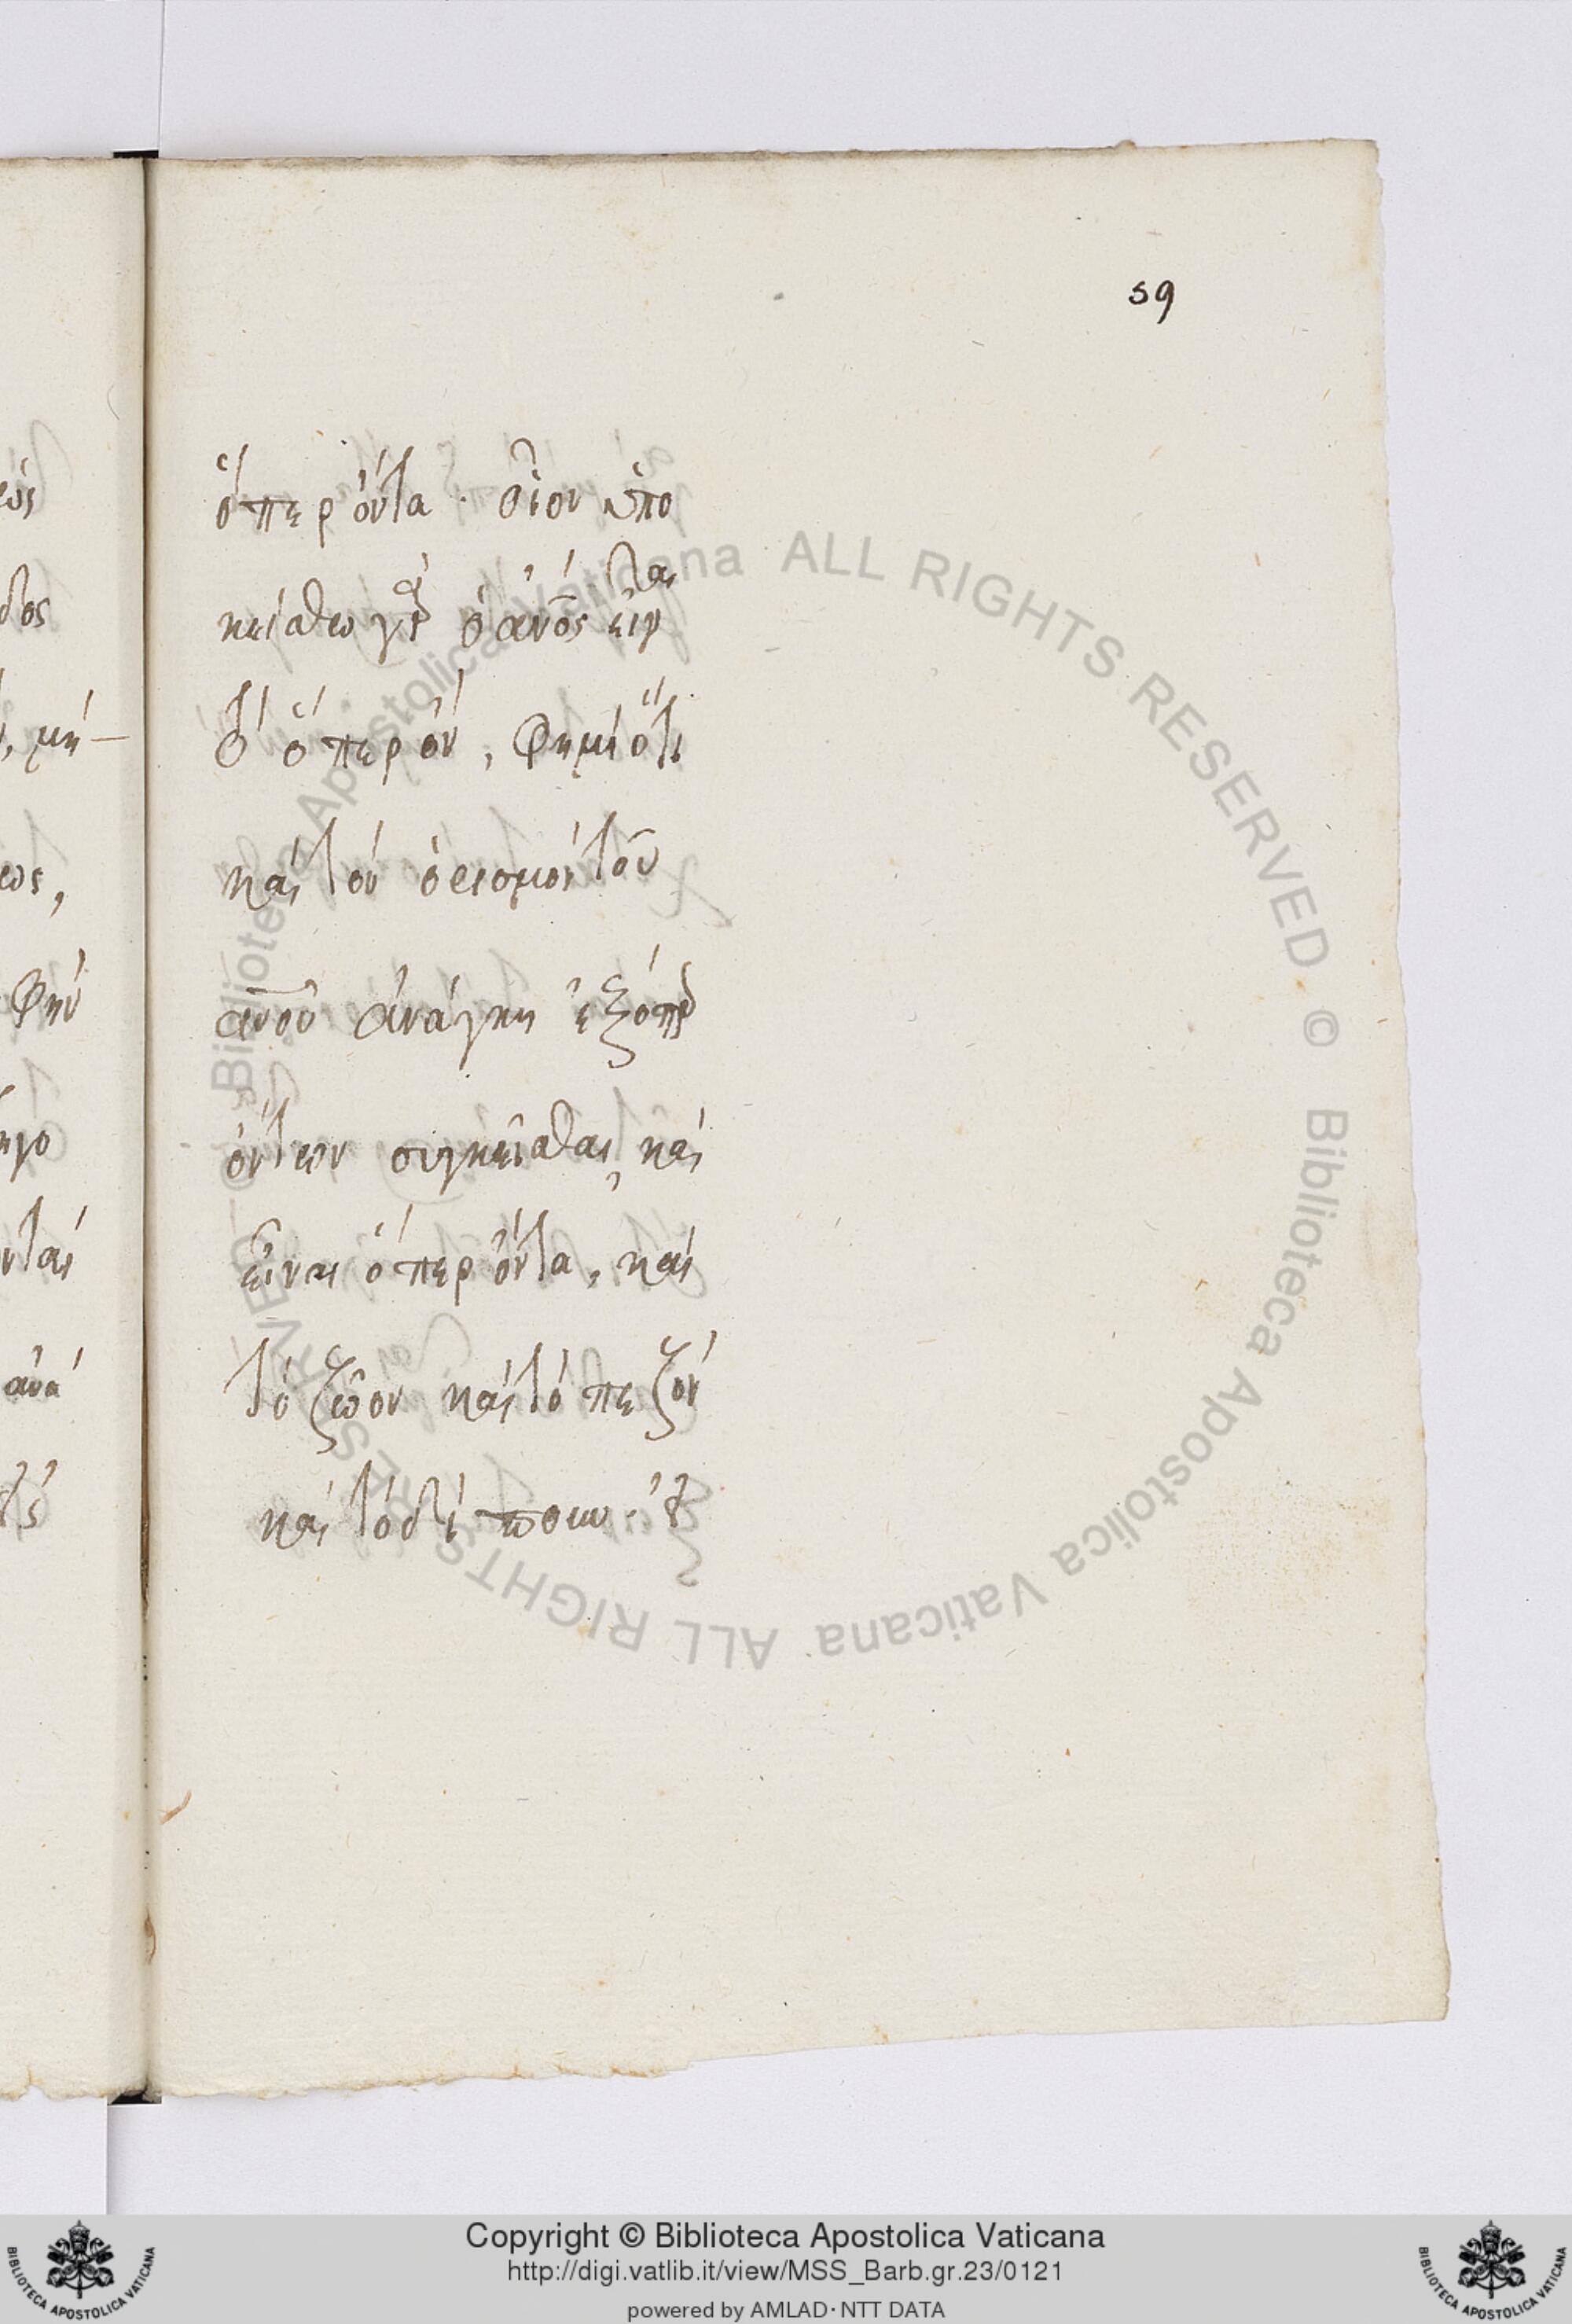 59
ὅπερ ὄντα · οἷον ὑπο
κείσθω γὰρ ὁ ἄνος εἶναι
τὸ ὅπερ ὄν, φημὶ ὅτι
καὶ τὸν ὁρισμὸν τοῦ
ἀνου ἀνάγκη ἐξ ὅπερ
ὄντων συγκεῖσθαι, καὶ
εἶναι ὅπερ ὄντα, καὶ
τὸ ζῶον καὶ τὸ πεζὸν
καὶ τὸ δίπουν.
Biblioteca Apostolica Vaticana ALL RIGHTS RESERVED © Biblioteca Apostolica Vaticana ALL RIGHTS RESERVED ©
Copyright © Biblioteca Apostolica Vaticana
http://digi.vatlib.it/view/MSS_Barb.gr.23/0121
powered by AMLAD · NTT DATA
BIBLIOTECA APOSTOLICA VATICANA
BIBLIOTECA APOSTOLICA VATICANA